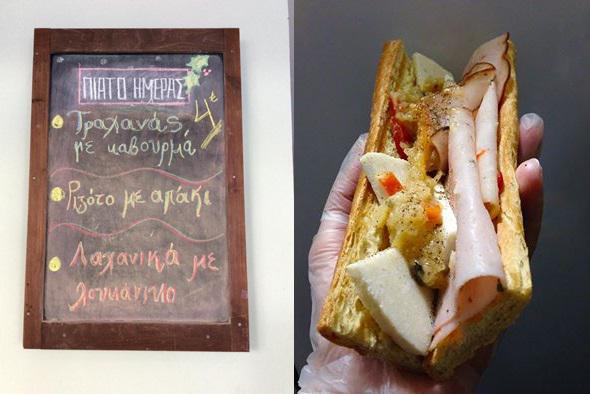 ΠΙΑΤΟ ΗΜΕΡΑΣ
4€
Τραχανάς
με καβουρμά
Ριζότο με απάκι
Λαχανικά με
λουκάνικο